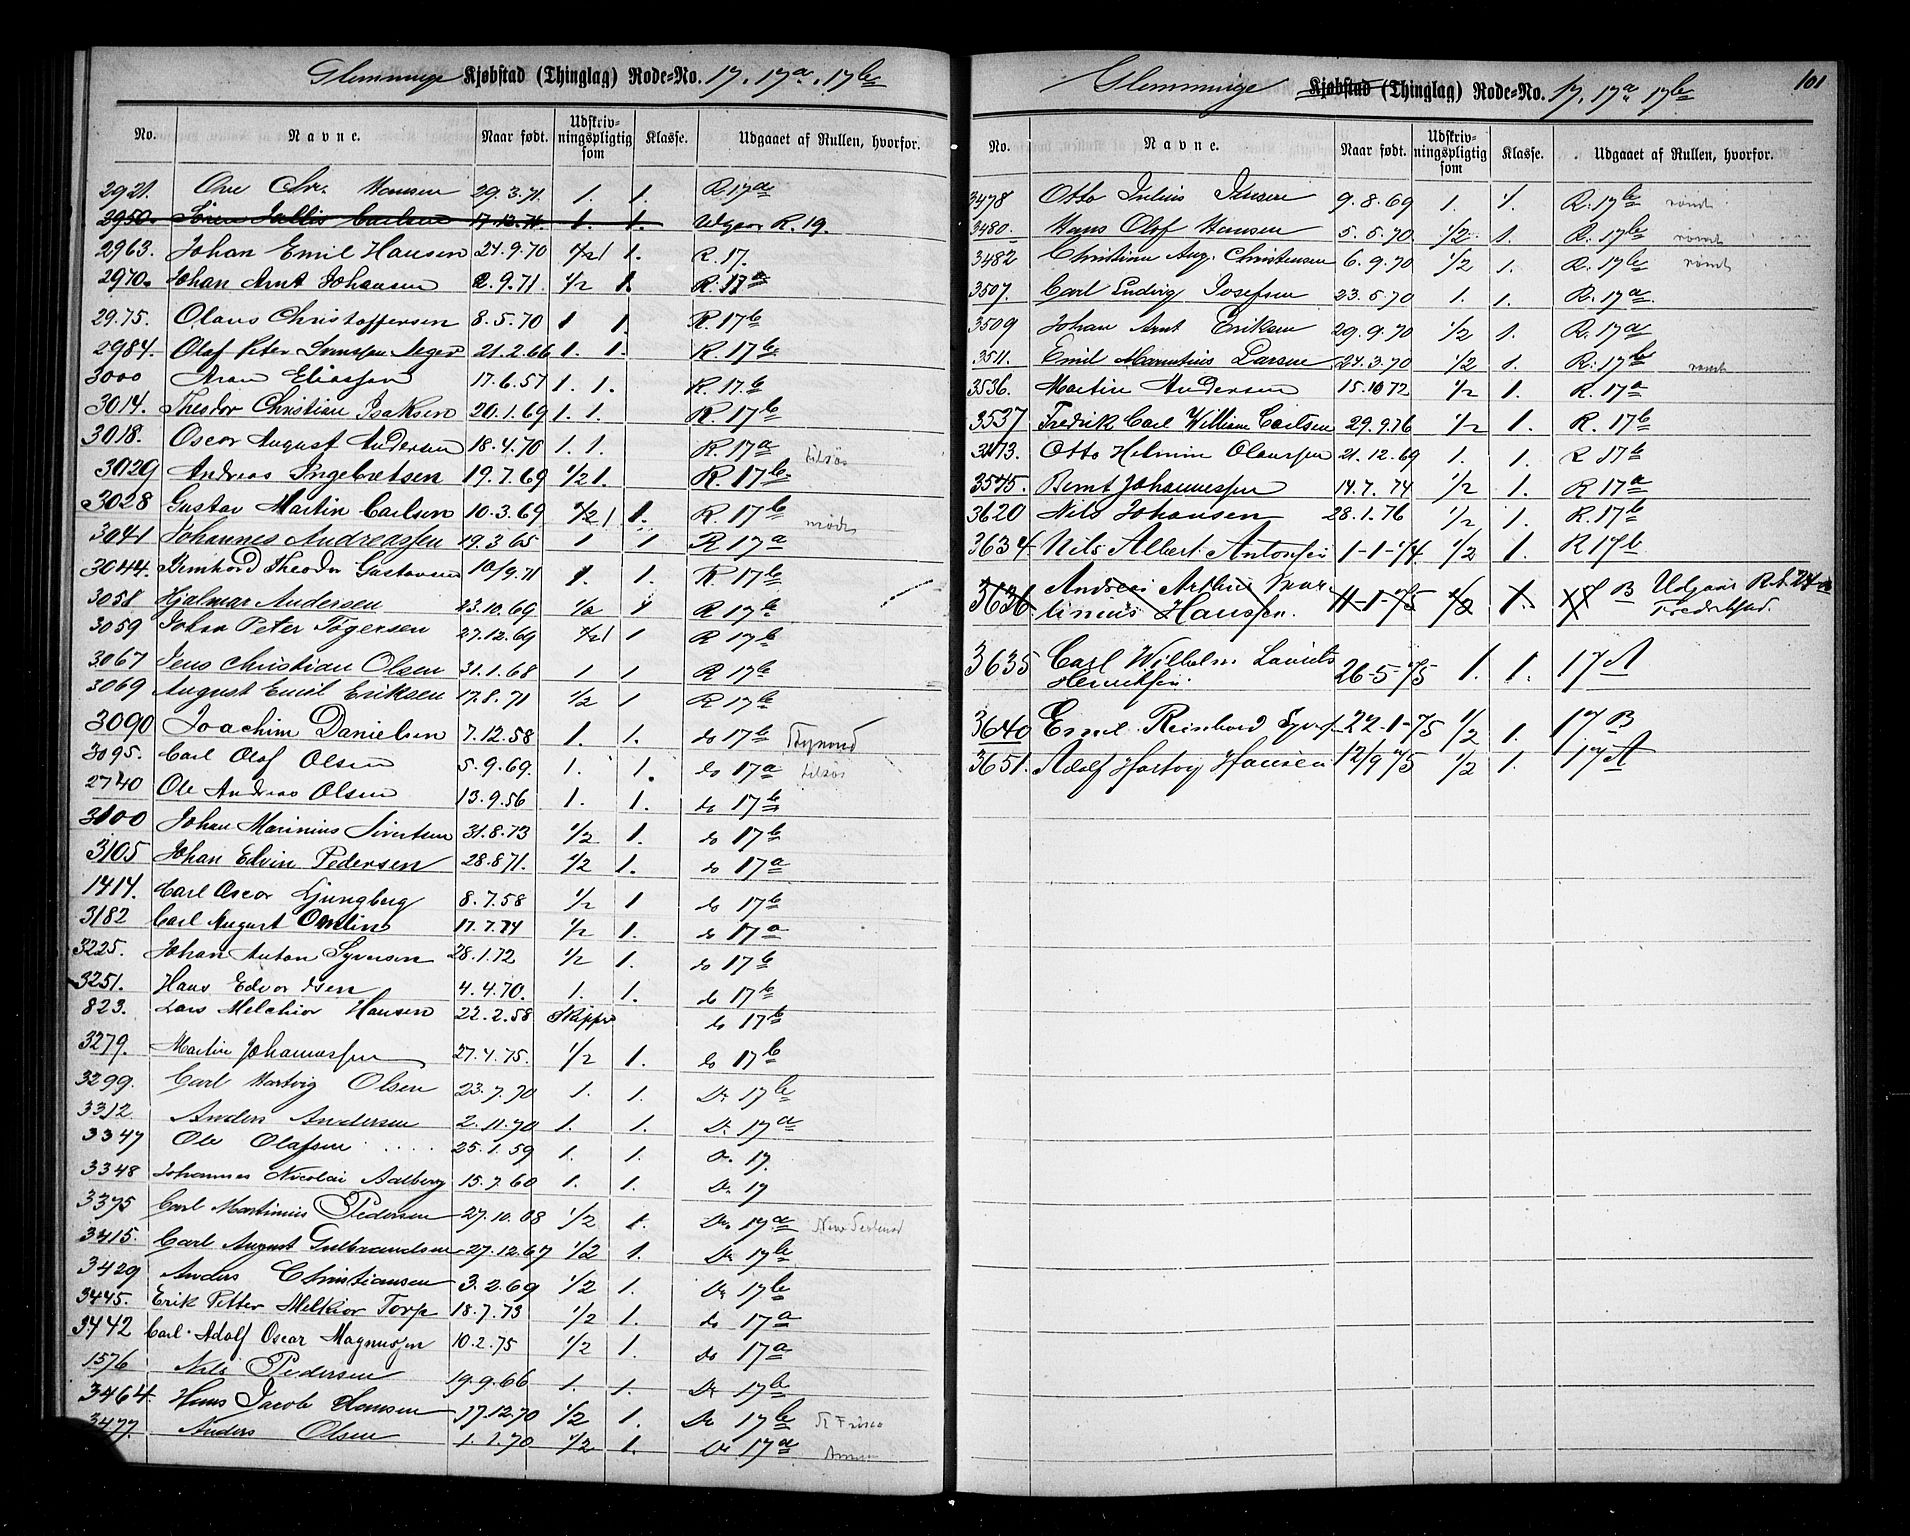 Glemminge Kjøbstad (Thinglag) Rode=No. 17. 17a. 17b
No. Navne. Naar født. Udskriv-ningspligtig som Klasse. Udgaaet af Rullen, hvorfor.
2921. Ove Chr. Hansen 29.3.71. 1. 1. R. 17a
2950. Søren Carlsen 17.12.71. 1. 1. Udgaar R. 19.
2963. Johan Emil Hansen 24.9.70 1/2 1. R. 17.
2970. Johan Arnt Johansen 2.9.71 1/2 1. R. 17a
2975. Olaus Christoffersen 8.5.70 1 1. R. 17b
2984. Olaf Peter 21.2.66 1. 1. R. 17b
3000 Aron Eliassen 17.6.57 1. 1. R. 17b
3014. Theodor Christian Isaksen 20.1.69 1. 1. R. 17b
3018. Oscar August Andersen 18.4.70 1. 1. R. 17a
3029 Andreas Ingebretsen 19.7.69 1/2 1. R. 17b
3028 Gustav Martin Carlsen 10.3.69 1/2 1. R. 17b
3041 Johannes Andreassen 19.3.65 1 1 R 17a
3044. Bernhard Theodor Gustavsen 10/9.71 1. 1. R. 17b
3058 Hjalmar Andersen 23.10.69 1/2 1 R 17b
3059 Johan Peter Tøgersen 27.12.69 1/2 1 R 17b
3067 Jens Christian Olsen 31.1.68 1 1 R 17b
3069 August Emil Eriksen 17.8.71 1/2 1 R 17b
3090 Joachim Danielsen 7.12.58 1. 1. do 17b
3095. Carl Olof Olsen 5.9.69. 1. 1. do 17a
2740 Ole Andreas Olsen 13.9.56 1. 1. do 17b
3100 Johan Marinius Sivertsen 31.8.73 1/2 1. do 17b
3105 Johan Edvin Pedersen 28.8.71. 1/2 1. do 17a
1414. Carl Oscar Ljungberg 8.7.58 1/2 1 do 17b
3182 Carl August 17.7.74 1/2 1. do 17a
3225. Johan Anton Syversen 28.1.72 1/2 1. do 17b
3251. Hans Edvardsen 4.4.70. 1. 1. do 17b
823. Lars Melchior Hansen 22.2.58 Skipper do 17b
3279. Martin Johannessen 27.4.75. 1/2 1. do 17b
3299. Carl Hartvig Olsen 23.7.70 1. 1. Do 17b
3312 Anders Andersen 2.11.70 1. 1. Do 17a
3347 Ole Olafsen 25.1.59 1. 1. Do 17.
3348 Johannes Nicolai Aalberg 15.7.60 1. 1. Do 17
3375 Carl Martinius Pedersen 27.10.68 1/2 1. Do 17a
3415. Carl August Gulbrandsen 27.12.67 1/2 1. Do 17b
3429 Anders Christiansen 3.2.69 1/2 1. Do 17b
3445. Erik Petter Melkior Torp 18.7.73 1/2 1. do 17a
3442 Carl Adolf Oscar Magnussen 10.2.75 1/2 1. do 17a
1576 Nils Pedersen 19.9.66 1. 1. Do 17b
3464. Hans Jacob Hansen 17.12.70 1/2 1. Do 17b
3477. Anders Olsen 1.1.70 1/2 1. Do 17a
101
Glemminge Kjøbstad (Thinglag) Rode=No. 17. 17a. 17b
No. Navne. Naar født. Udskriv-ningspligtig som Klasse. Udgaaet af Rullen, hvorfor.
3478 Otto Julius Jensen 9.8.69 1. 1. R. 17b rømt
3480. Hans Olof Hansen 5.5.70 1/2 1. R. 17b rømt
3482 Christian Aug. Christensen 6.9.70 1/2 1. R. 17b rømt
3507. Carl Ludvig Josefsen 23.5.70 1. 1. R. 17a
3509 Johan Arnt Eriksen 29.9.70 1/2 1. R. 17a
3511. Emil Mauritius Larsen 24.3.70 1/2 1. R. 17b rømt
3536. Martin Andersen 15.10.72 1/2 1. R. 17a
3537 Fredrik Carl William Carlsen 29.9.76 1/2 1. R. 17b
3173. Otto Helmin Olaussen 21.12.69 1. 1. R 17b
3575. Bernt Johannessen 14.7.74 1/2 1. R 17a
3620 Nils Johansen 28.1.76 1/2 1. R. 17b
3634 Nils Albert Antonsen 1-1-74. 1/2 1. R 17b
3636 Andreas Arthur Mar- 11-1-75 1/2 1. 17 B Udgaar R.
tinius Hansen. Fredrikstad.
3635 Carl Wilhelm Laurits 26-5-75 1. 1. 17 A
Henriksen
3640 Emil Reinhard Syvers. 22-1-75 1/2 1. 17 B
3651. Adolf Hartvig Hansen 12/9 75 1/2 1. 17 A